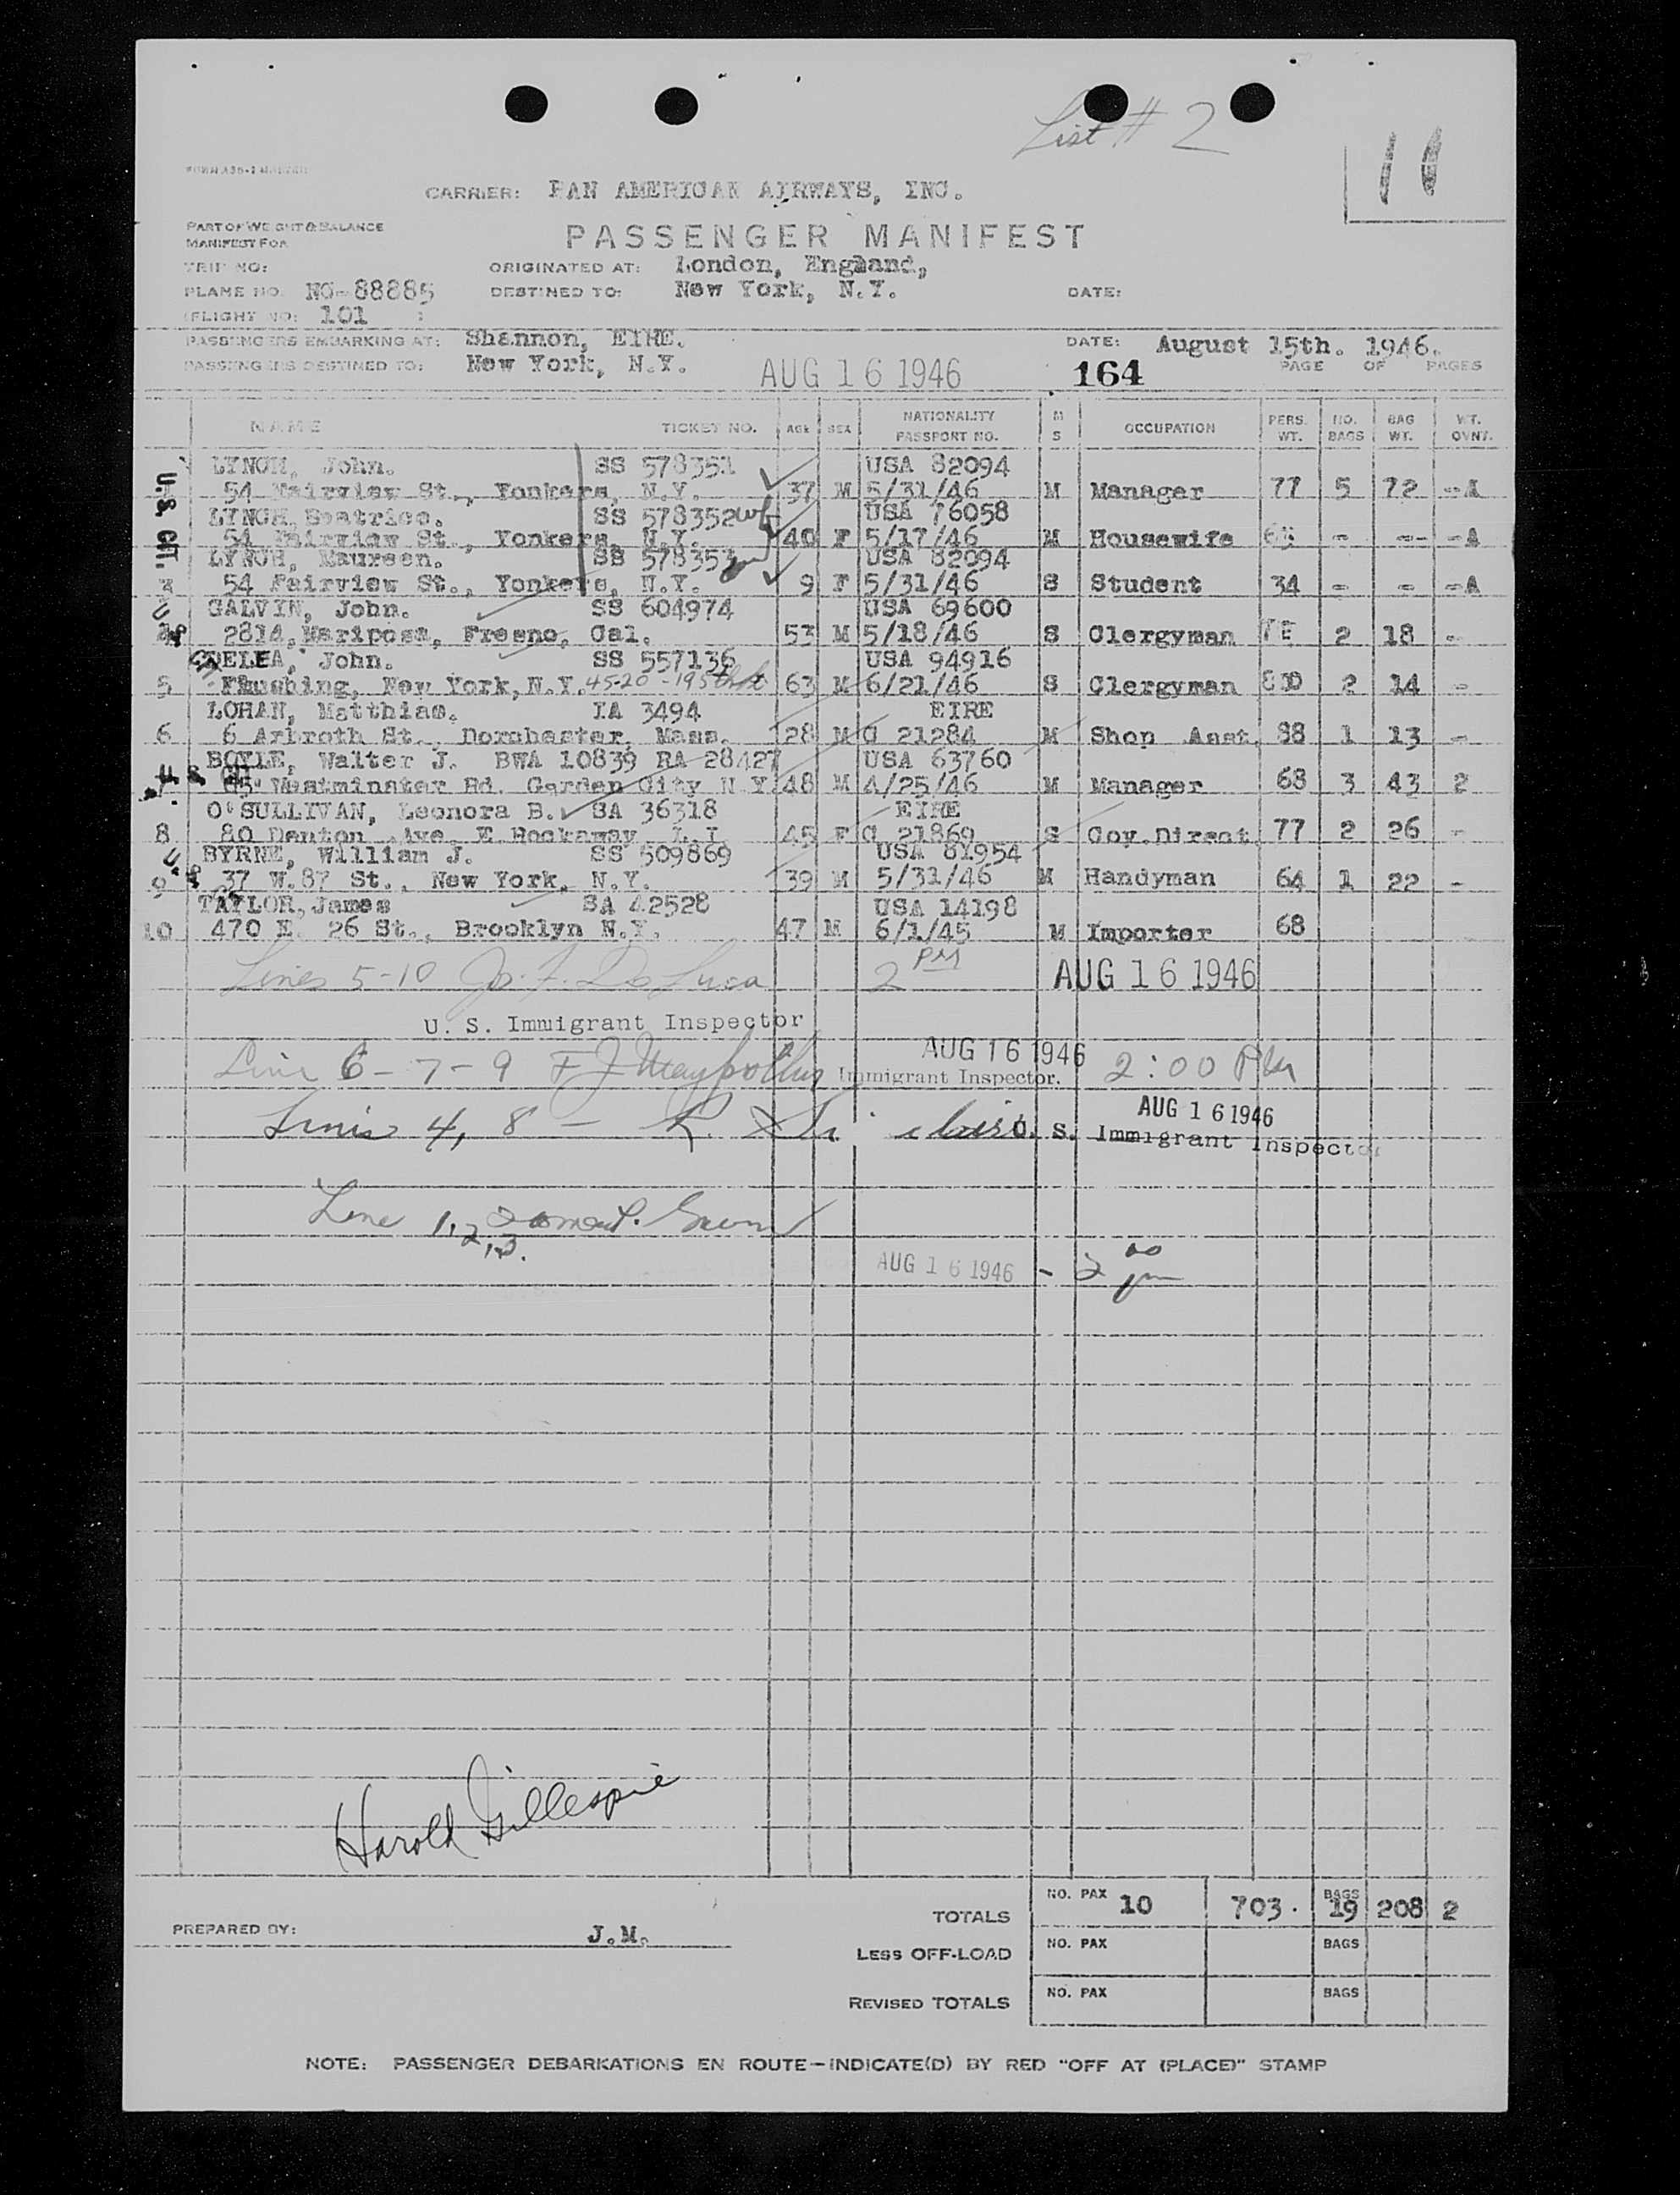 List # 2
11
CARRIER: PAN AMERICAN AIRWAYS, INC.
PART OF WEIGHT & BALANCE
MANIFEST FOR
PASSENGER MANIFEST
TRIP NO:
ORIGINATED AT: London, England,
PLANE NO. NC-88885 DESTINED TO: New York, N.Y. DATE:
(FLIGHT NO: 101 )
PASSENGERS EMBARKING AT: Shannon, EIRE. DATE: August 15th. 1946.
PASSENGERS DESTINED TO: New York, N.Y. AUG 16 1946 164 PAGE OF PAGES
NAME TICKET NO. AGE SEX NATIONALITY PASSPORT NO. M S OCCUPATION PERS. WT. NO. BAGS BAG WT. WT. OVNT.
LYNCH, John. SS 578351 USA 82094
54 Fairview St., Yonkers, N.Y. 37 M 5/31/46 M Manager 77 5 72 --A
LYNCH, Beatrice. SS 578352 wf USA 76058
54 Fairview St., Yonkers, N.Y. 40 F 5/17/46 M Housewife - -- --A
U.S. CIT.
LYNCH, Maureen. SS 578353 USA 82094
3 54 Fairview St., Yonkers, N.Y. 9 F 5/31/46 S Student 34 - - --A
GALVIN, John. SS 604974 USA 69600
2814, Mariposa, Fresno, Cal. 53 M 5/18/46 S Clergyman 2 18 -
John. SS 557136 USA 94916
5 Flushing, New York, N.Y. 45-20-195th St 63 M 6/21/46 S Clergyman 2 14 -
LOHAN, Matthias. IA 3494 EIRE
6 6 Arbroth St., Dorchester, Mass. 28 M C 21284 M Shop Asst. 88 1 13 -
BOYLE, Walter J. BWA 10839 RA 28427 USA 63760
Westminster Rd. Garden City N Y 48 M 4/25/46 M Manager 68 3 43 2
O'SULLIVAN, Leonora B. SA 36318 EIRE
8 80 Denton Ave E. Rockaway L I 45 F C 21869 S Coy.Direct. 77 2 26 -
BYRNE, William J. SS 509869 USA 81954
9 37 W.87 St., New York, N.Y. 39 M 5/31/46 M Handyman 64 1 22 -
TAYLOR, James SA 42528 USA 14198
10 470 E. 26 St., Brooklyn N.Y. 47 M 6/1/45 M Importer 68
Lines 5-10 Jos. F. De Luca 2 PM AUG 16 1946
U. S. Immigrant Inspector
Line 6-7-9 AUG 16 1946 Immigrant Inspector. 2:00 PM
Lines 4, 8 - AUG 16 1946
U. S. Immigrant Inspector
Line 1, 2, 3.
AUG 16 1946 - 2 00 pm
Harold Gillespie
TOTALS NO. PAX 10 703. BAGS 19 208 2
PREPARED BY: J.M.
LESS OFF-LOAD NO. PAX BAGS
REVISED TOTALS NO. PAX BAGS
NOTE: PASSENGER DEBARKATIONS EN ROUTE—INDICATE(D) BY RED "OFF AT (PLACE)" STAMP